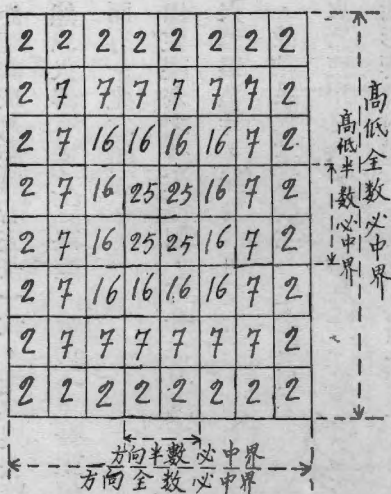 2 2 2 2 2 2 2 2
2 7 7 7 7 7 7 2
2 7 16 16 16 16 7 2
2 7 16 25 25 16 7 2
2 7 16 25 25 16 7 2
2 7 16 16 16 16 7 2
2 7 7 7 7 7 7 2
2 2 2 2 2 2 2 2
高低全數必中界
高低半數必中界
方向半數必中界
方向全數必中界